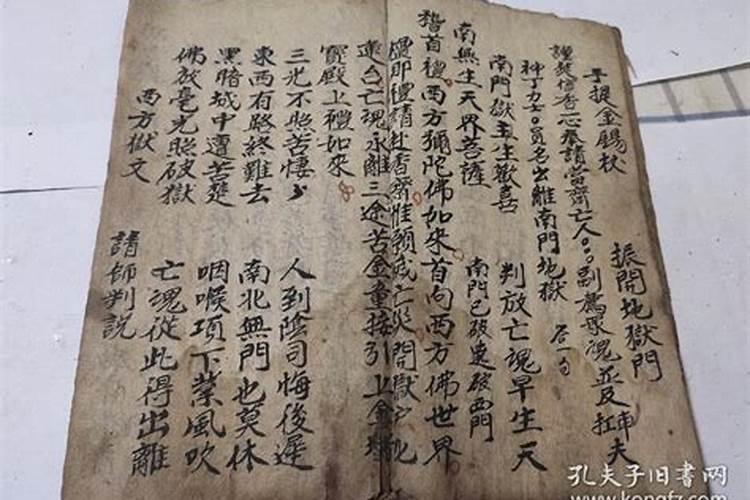 手提金錫杖 振開地獄門
謹焚信香一心奉請當齋亡人○○副薦眾魂並及扛夫
神丁力士○員名出離南門地獄 后一句
南門獄主生歡喜 判放亡魂早生天
南無生天界菩薩 南門已破速破西門
稽首禮西方彌陀佛如來首向西方佛世界
禮即禮請赴香齋惟願亡災開獄
亡魂永離三途苦金童接引上金
寶殿上禮如來
三光不照苦悽 人到陰司悔後遲
東西有路終難去 南北無門也莫休
黑暗城中遭苦楚 咽喉項下業風吹
佛放毫光照破獄 亡魂從此得出離
西方獄文 請師判說
孔夫子旧書网